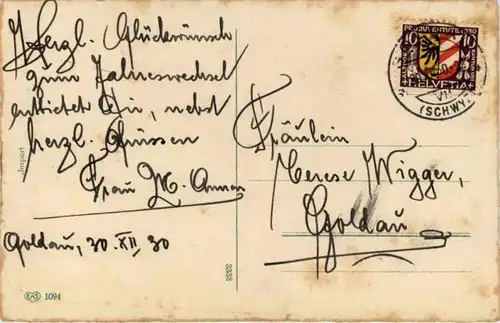 Herzl. Glückwünsch
zum Jahreswechsel
entbietet Dir, nebst
herzl. Grüssen
Frau M. Amman
Goldau, 30. XII. 30
Import
EAS 1094
3338
PRO JUVENTUTE 1930
10 10
HELVETIA
(SCHWYZ)
Fräulein
Therese Wigger,
Goldau